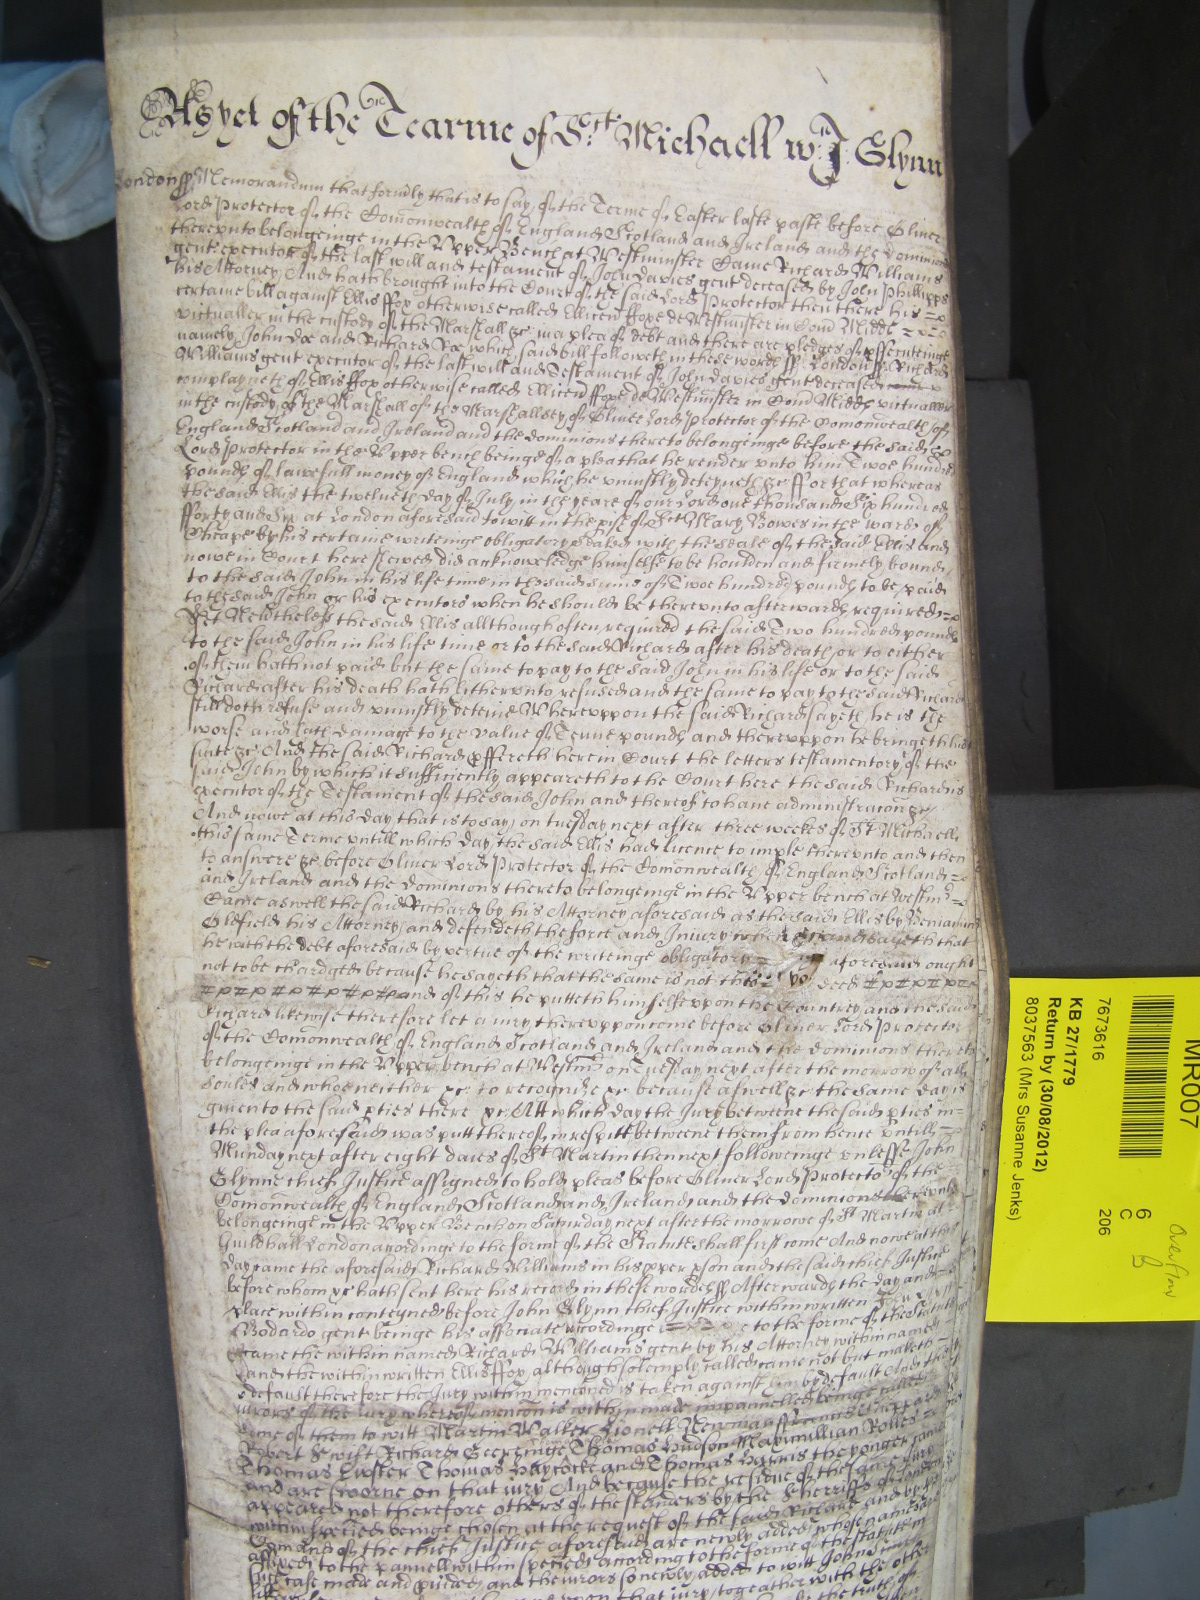 As yet of the Tearme of St Michaell wth J Glynn
London ss Memorandum that formerly that is to say of the Terme of Easter laste paste before Oliver
Lord Protector of the Comonwealth of England Scotland and Ireland and the dominions
thereunto belongeinge in the Upper Bench at Westminster Came Richard Williams
gent executor of the last will and testament of John Davies gent deceased by John Phillipps
his Attorney And hath brought into the Court of the said Lord Protector then there his
certaine bill against Ellis ffox otherwise called Ellicend ffoxe de Westminster in Com Midd
victualler in the custody of the Marshall &c in a plea of debt and there are pledges of psecuteinge
namely John Doe and Richard Roe which said bill followeth in these words ss London ss Richard
Williams gent executor of the last will and Testament of John Davies gent deceased
complayneth of Ellis ffox otherwise called Ellicend ffoxe de Westminster in Com Midd victualler
in the custody of the Marshall of the Marshallsey of Oliver Lord Protector of the Comonwealth of
England Scotland and Ireland and the dominions thereto belongeinge before the said
Lord Protector in the Upper bench beinge of a plea that he render unto him Twoe hundred
pounds of lawfull money of England which he uniustly deteyneth &c ffor that whereas
the said Ellis the twelveth day of July in the yeare of our Lord one thousand Six hundred
fforty and Six at London aforesaid to witt in the pish of St Mary Bowes in the ward of
Cheape by his certaine writeinge obligatory Sealed with the seale of the said Ellis and
nowe in Court here shewed did acknowledge himselfe to be houlden and firmely bound
to the said John in his life time in the said sume of Twoe hundred pounds to be paid
to the said John or his executors when he should be thereunto afterwards required
Yet Neverthelesse the said Ellis allthough often required the said Two hundred pounds
to the said John in his life time or to the said Richard after his death or to either
of them hath not paid but the same to pay to the said John in his life or to the said
Richard after his death hath hitherunto refused and the same to pay to the said Richard
still doth refuse and uniustly deteine Whereuppon the said Richard sayeth he is the
worse and hath damage to the value of Tenne pounds and thereuppon he bringeth his
suite &c And the said Richard pffereth here in Court the letters testamentory of the
said John by which it sufficiently appeareth to the Court here the said Richard is
executor of the Testament of the said John and thereof to have administracon &c
And nowe at this day that is to say on tuesday next after three weekes of St Michaell
this same Terme untill which day the said Ellis had licence to imple thereunto and then
to answere &c before Oliver Lord Protector of the Comonwealth of England Scotland
and Ireland and the dominions thereto belongeinge in the Upper bench at Westmr
Came aswell the said Richard by his Attorney aforesaid as the said Ellis by Beniamin
Oldfield his Attorney and defendeth the force and Iniury when &c and sayeth that
he with the debt aforesaid by vertue of the writeinge obligatory aforesaid ought
not to be chardged because he sayeth that the same is not deed
and of this he putteth himselfe uppon the Countrey and the said
Ricard likewise therefore let a iury thereuppon come before Oliver Lord Protector
of the Comonwealth of England Scotland and Ireland and the dominions thereto
belongeinge in the Upper bench at Westmr on Tuesday next after the morrow of all
soules and whoe neither &c to recognize &c because aswell &c the same day is
given to the said pties there &c Att which day the Jury betweene the said pties in
the plea aforesaid was putt thereof in respitt betweene them from hence untill
Munday next after eight daies of St Martin then next followeinge unlesse John
Glynne chief Justice assigned to hold pleas before Oliver Lord Protector of the
Comonwealth of England Scotland and Ireland and the dominions thereunto
belongeinge in the Upper Bench on Saturday next after the morrowe of St Martin at
Guildhall London accordinge to the forme of the Statute shall first come And nowe at this
day came the aforesaid Richard Williams in his pper pson and the said chief Justice
before whom &c hath sent here his record in these words ss Afterwards the day and
place within conteyned before John Glynn chief Justice within written
Wodardo gent beinge his assosiate accordinge to the forme of the Statute
came the within named Richard Williams gent by his Attorney within named
and the within written Ellis ffox although solemply called came not but maketh
defaust therefore the Jury within menconed is taken against him by default And the
iurors of the iury whereof mencon is within made impannelled beinge called
some of them to witt Martin Walker Lionell Newman
Robert Swift Richard Thomas Hudson Maximillian Rolles
Thomas Luster Thomas Haycocke and Thomas Harris the yonger
and are sworne on that iury And because the residue of the same Jury
appeared not therefore others of the standers by the Sherriffs of London
within specied beinge chosen at the request of the said Richard and by the
Comand of the chief Justice aforesaid are newly added whose names are
affixed to the pannell within specied according to the forme of the statute in
such case made and pvided and the iurors so newly added to witt John
uppon that iury togeather with the other
MR007
7673616
KB 27/1779
Return by (30/08/2012)
8037563 (Mrs Susanne Jenks)
6
C
206
Overflow